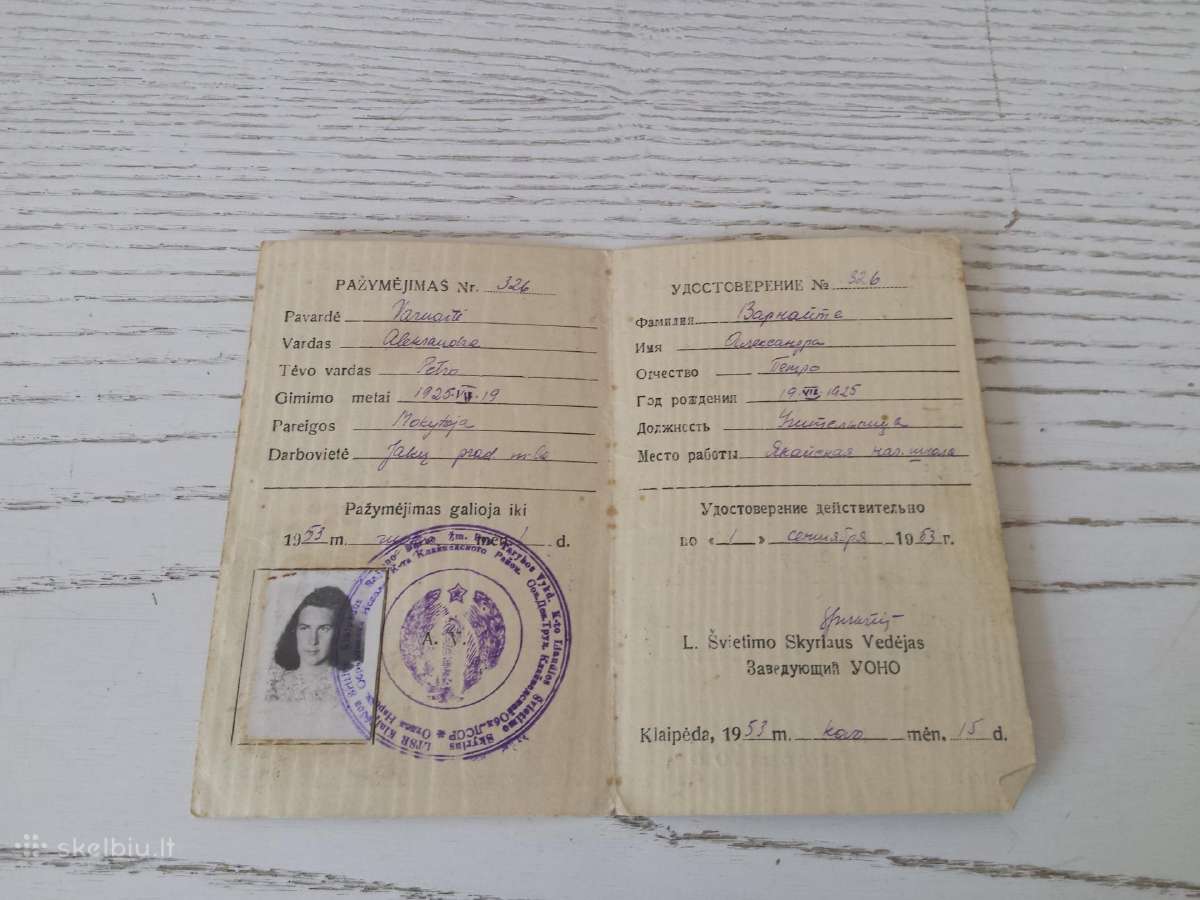 PAŽYMĖJIMAS Nr. 326
Pavardė Varnaitė
Vardas Aleksandra
Tėvo vardas Petro
Gimimo metai 1925.VII.19
Pareigos Mokytoja
Darbovietė Jakų prad. m-la
Pažymėjimas galioja iki
1953 m. mėn. 1 d.
A. V.
УДОСТОВЕРЕНИЕ № 326
Фамилия Варнайте
Имя Александра
Отчество Петро
Год рождения 19.VII.1925
Должность Учительница
Место работы Якайская нач. школа
Удостоверение действительно
по « 1 » сентября 1953 г.
L. Švietimo Skyriaus Vedėjas
Заведующий УОНО
Klaipėda, 1953 m. kov mėn. 15 d.
skelbiu.lt